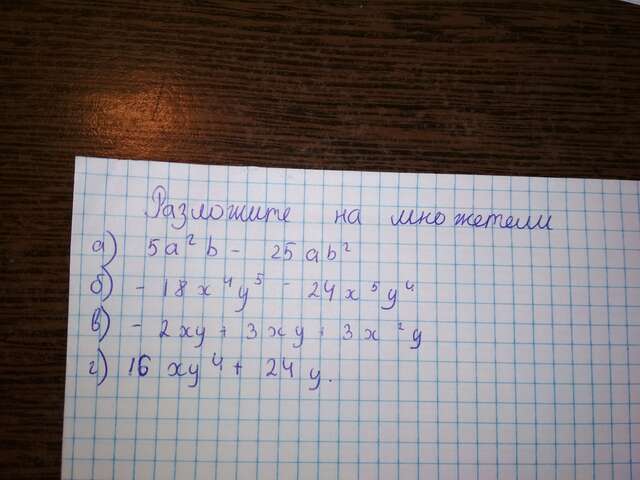 Разложите на множетели
а) 5a²b - 25ab²
б) - 18x⁴y⁵ - 24x⁵y⁴
в) - 2xy + 3xy + 3x²y
г) 16xy⁴ + 24y.